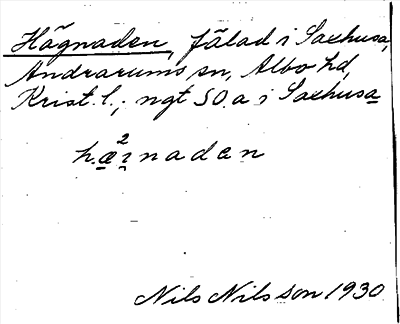 Hägnaden, fälad i Saxhusa,
Andrarums sn, Albo hd,
Krist. l.; ngt SO. a i Saxhusa
hæ²i̯naden
Nils Nilsson 1930